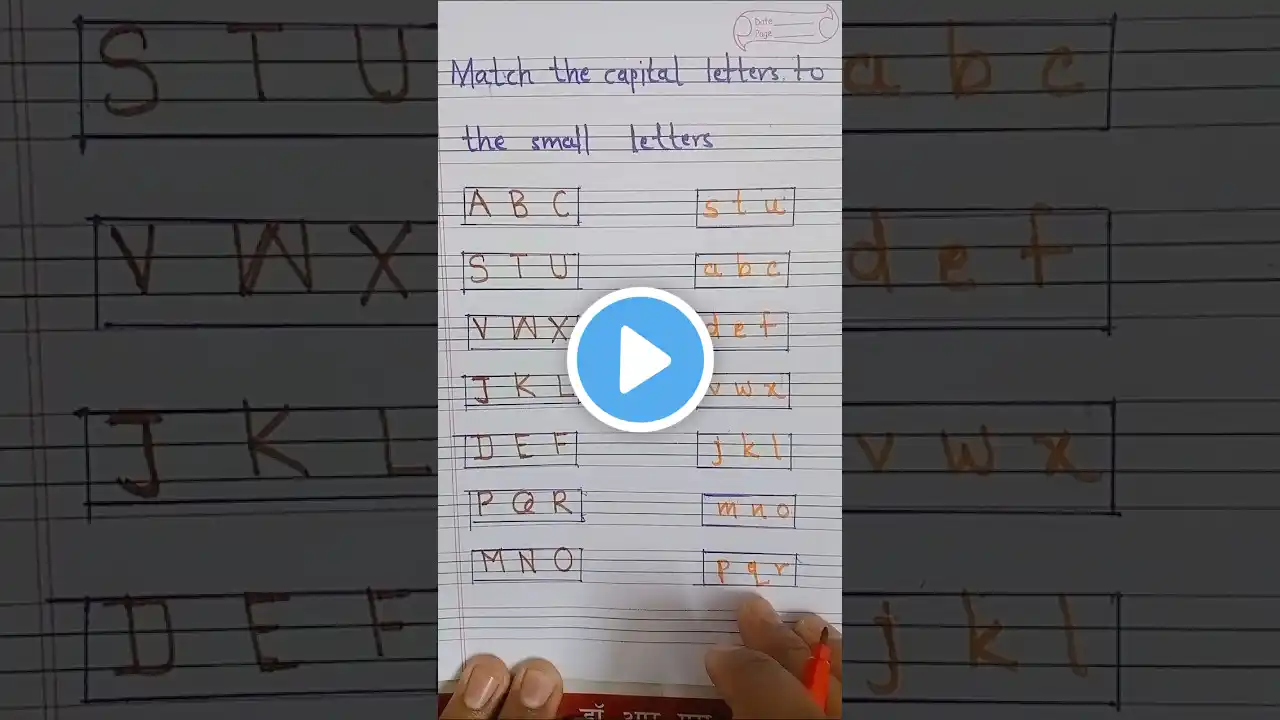 Date
Page
Match the capital letters to
the small letters
A B C s t u
S T U a b c
V W X d e f
J K L v w x
D E F j k l
P Q R m n o
M N O p q r
डॉ